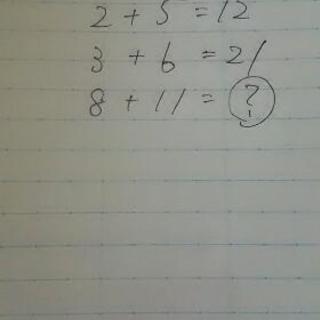 2 + 5 = 12
3 + 6 = 21
8 + 11 = ?